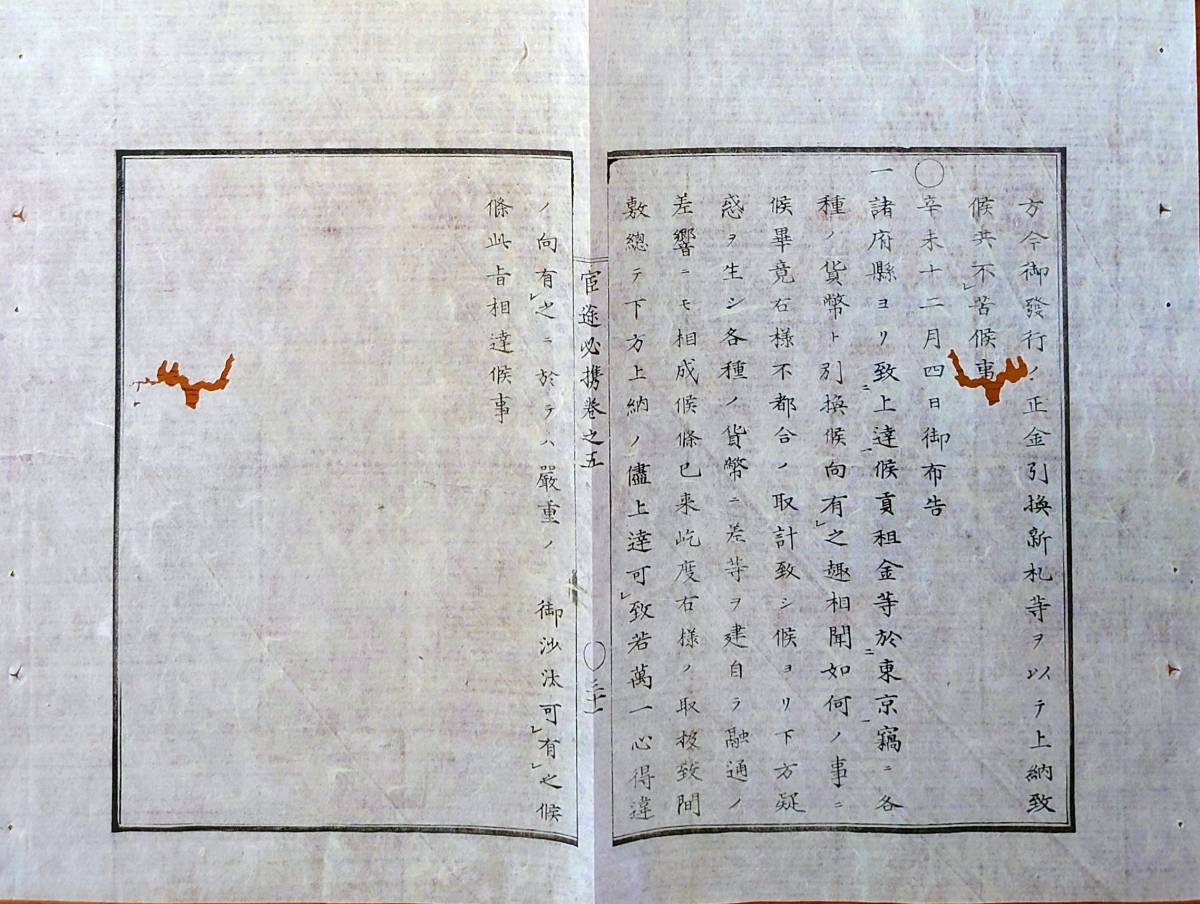 方今御發行ノ正金引換新札等ヲ以テ上納致
候共不苦候事
○辛未十二月四日御布告
一諸府縣ヨリ致上達候貢租金等於東京竊ニ各
種ノ貨幣ト引換候向有之趣相聞如何ノ事ニ
候畢竟右樣不都合ノ取計致シ候ヨリ下方疑
惑ヲ生シ各種ノ貨幣ニ差等ヲ建自ラ融通ノ
差響ニモ相成候條已来屹度右様ノ取扱致間
敷總テ下方上納ノ儘上達可致若萬一心得違
宦途必携卷之五 ○ 三十一
ノ向有之ニ於テハ嚴重ノ 御沙汰可有之候
條此旨相達候事